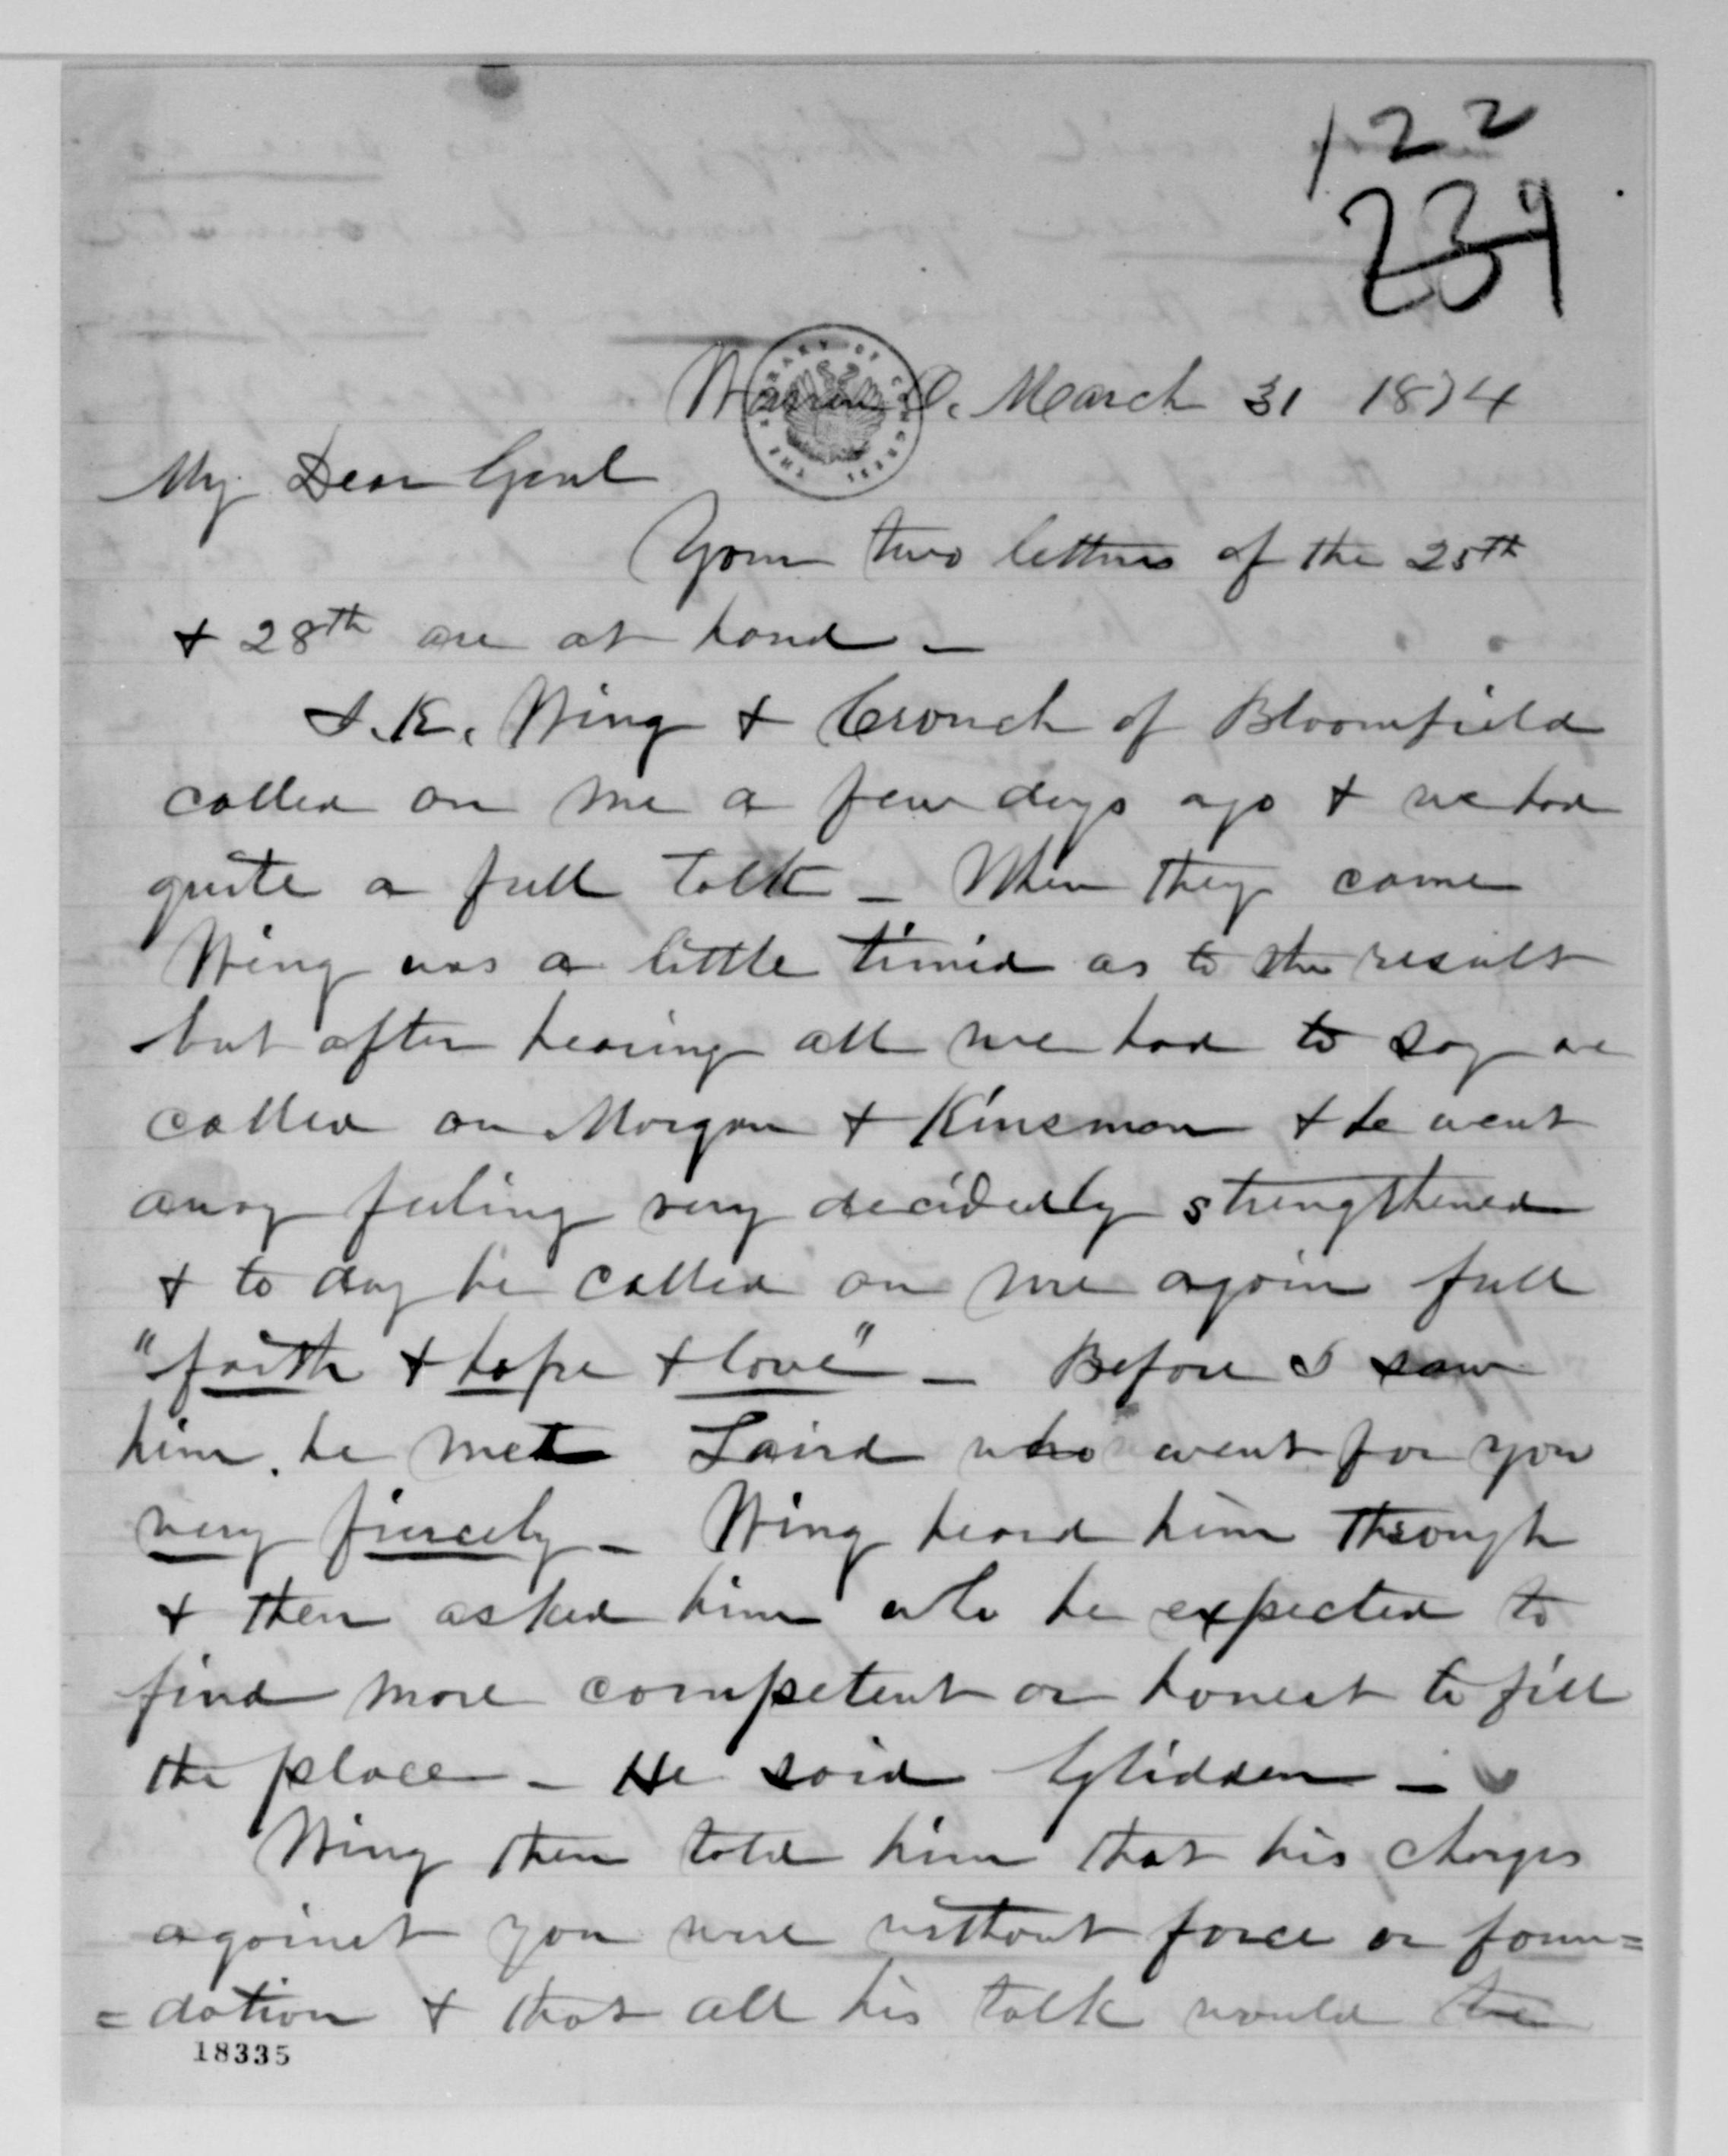 122
234
Warren O. March 31 1874
My Dear Genl
Your two letters of the 25th
+ 28th are at hand –
J. K. Wing + Crouch of Bloomfield
called on me a few days ago + we had
quite a full talk – When they came
Wing was a little timid as to the result
but after hearing all we had to say we
called on Morgan + Kinsman + he went
away feeling very decidedly strengthened
+ to day he called on me again full
"faith + hope + love" – Before I saw
him, he met Laird who went for you
very fiercely – Wing heard him through
+ then asked him who he expected to
find more competent or honest to fill
the place – He said Glidden –
Wing then told him that his charges
against you were without force or foun=
=dation + that all his talk would
18335
THE LIBRARY OF CONGRESS